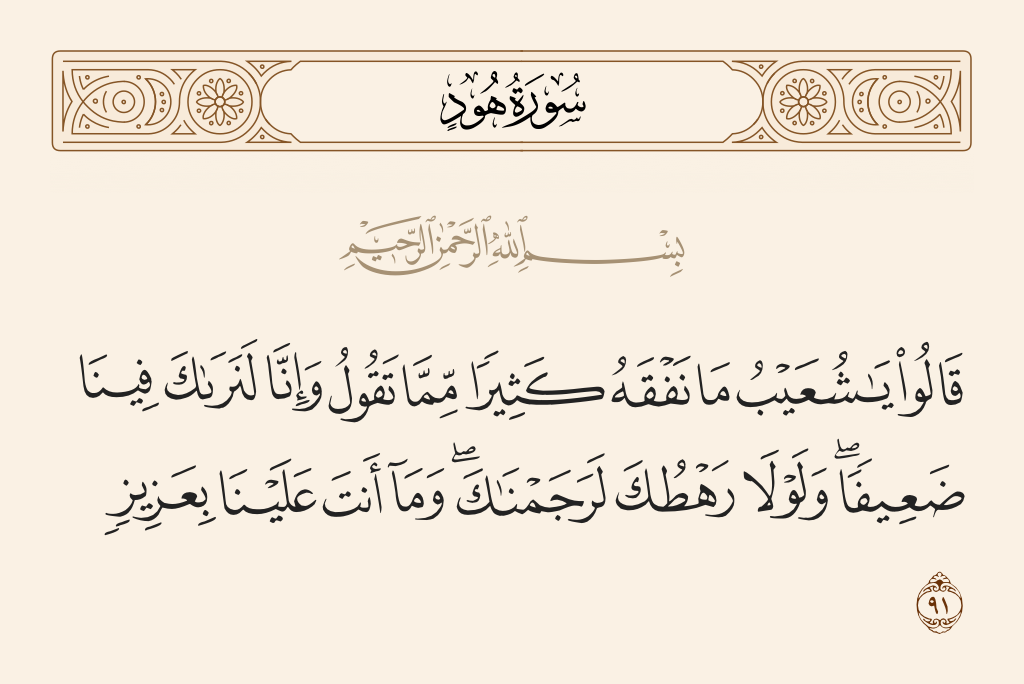 سُورَةُ هُودٍ
بِسْمِ ٱللَّهِ ٱلرَّحْمَٰنِ ٱلرَّحِيمِ
قَالُوا۟ يَـٰشُعَيْبُ مَا نَفْقَهُ كَثِيرًا مِّمَّا تَقُولُ وَإِنَّا لَنَرَىٰكَ فِينَا
ضَعِيفًا ۖ وَلَوْلَا رَهْطُكَ لَرَجَمْنَـٰكَ ۖ وَمَآ أَنتَ عَلَيْنَا بِعَزِيزٍ
٩١